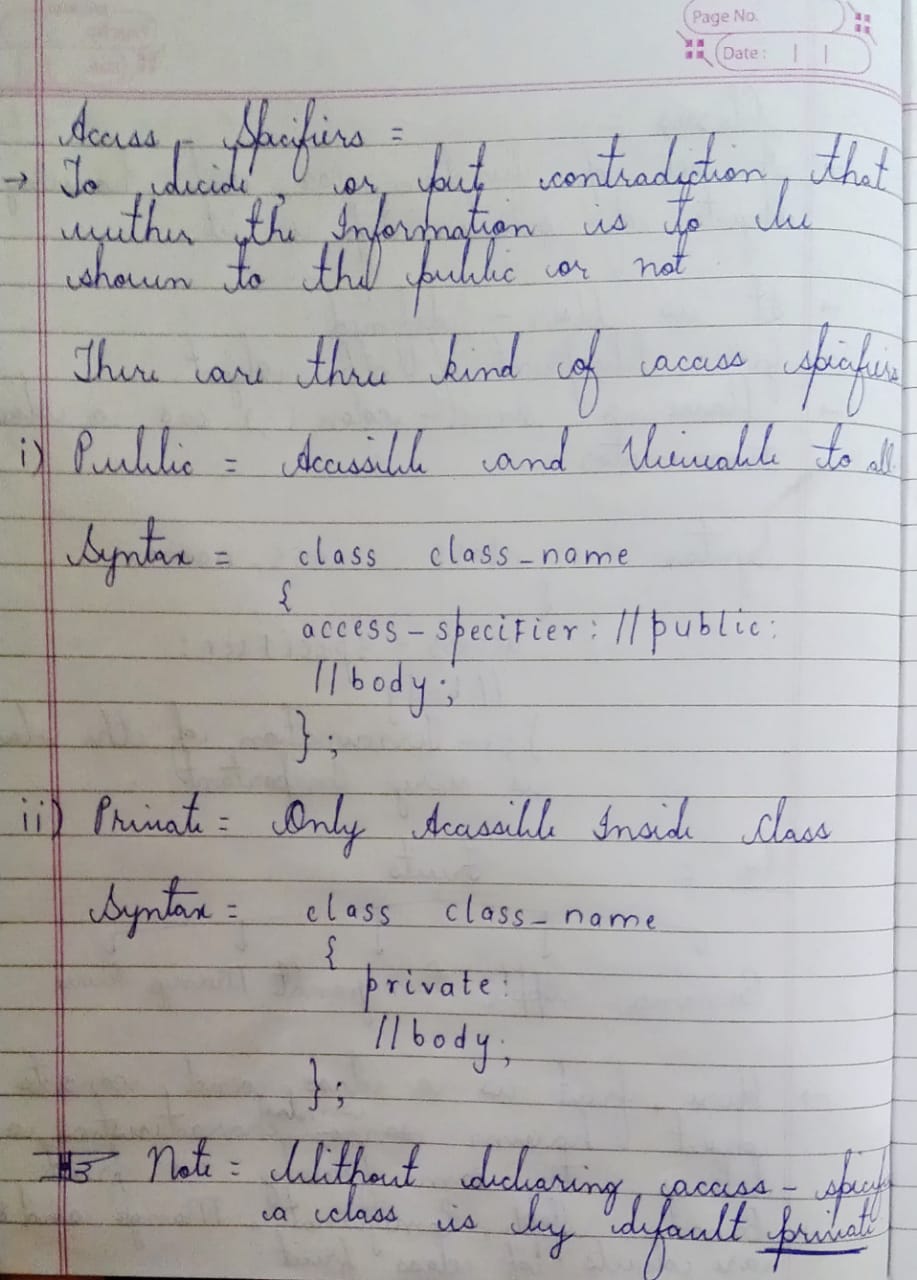 Page No.
Date :
Access - Specifiers =
→ To decide, or put contradiction, that
wether the Information is to be
shown to the public or not
There are three kind of access spicifiers
i) Public = Accessible and Viewable to all
Syntax = class class_name
{
access-specifier: //public:
//body;
};
ii) Private = Only Acassible Inside Class
Syntax = class class_name
{
private:
//body;
};
Note = Without declaring access-
a class is by default private